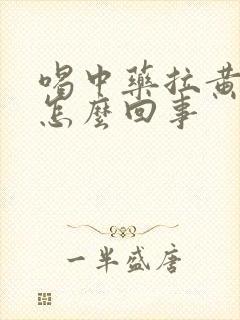 喝中藥拉黃
怎麼回事
一半盛唐